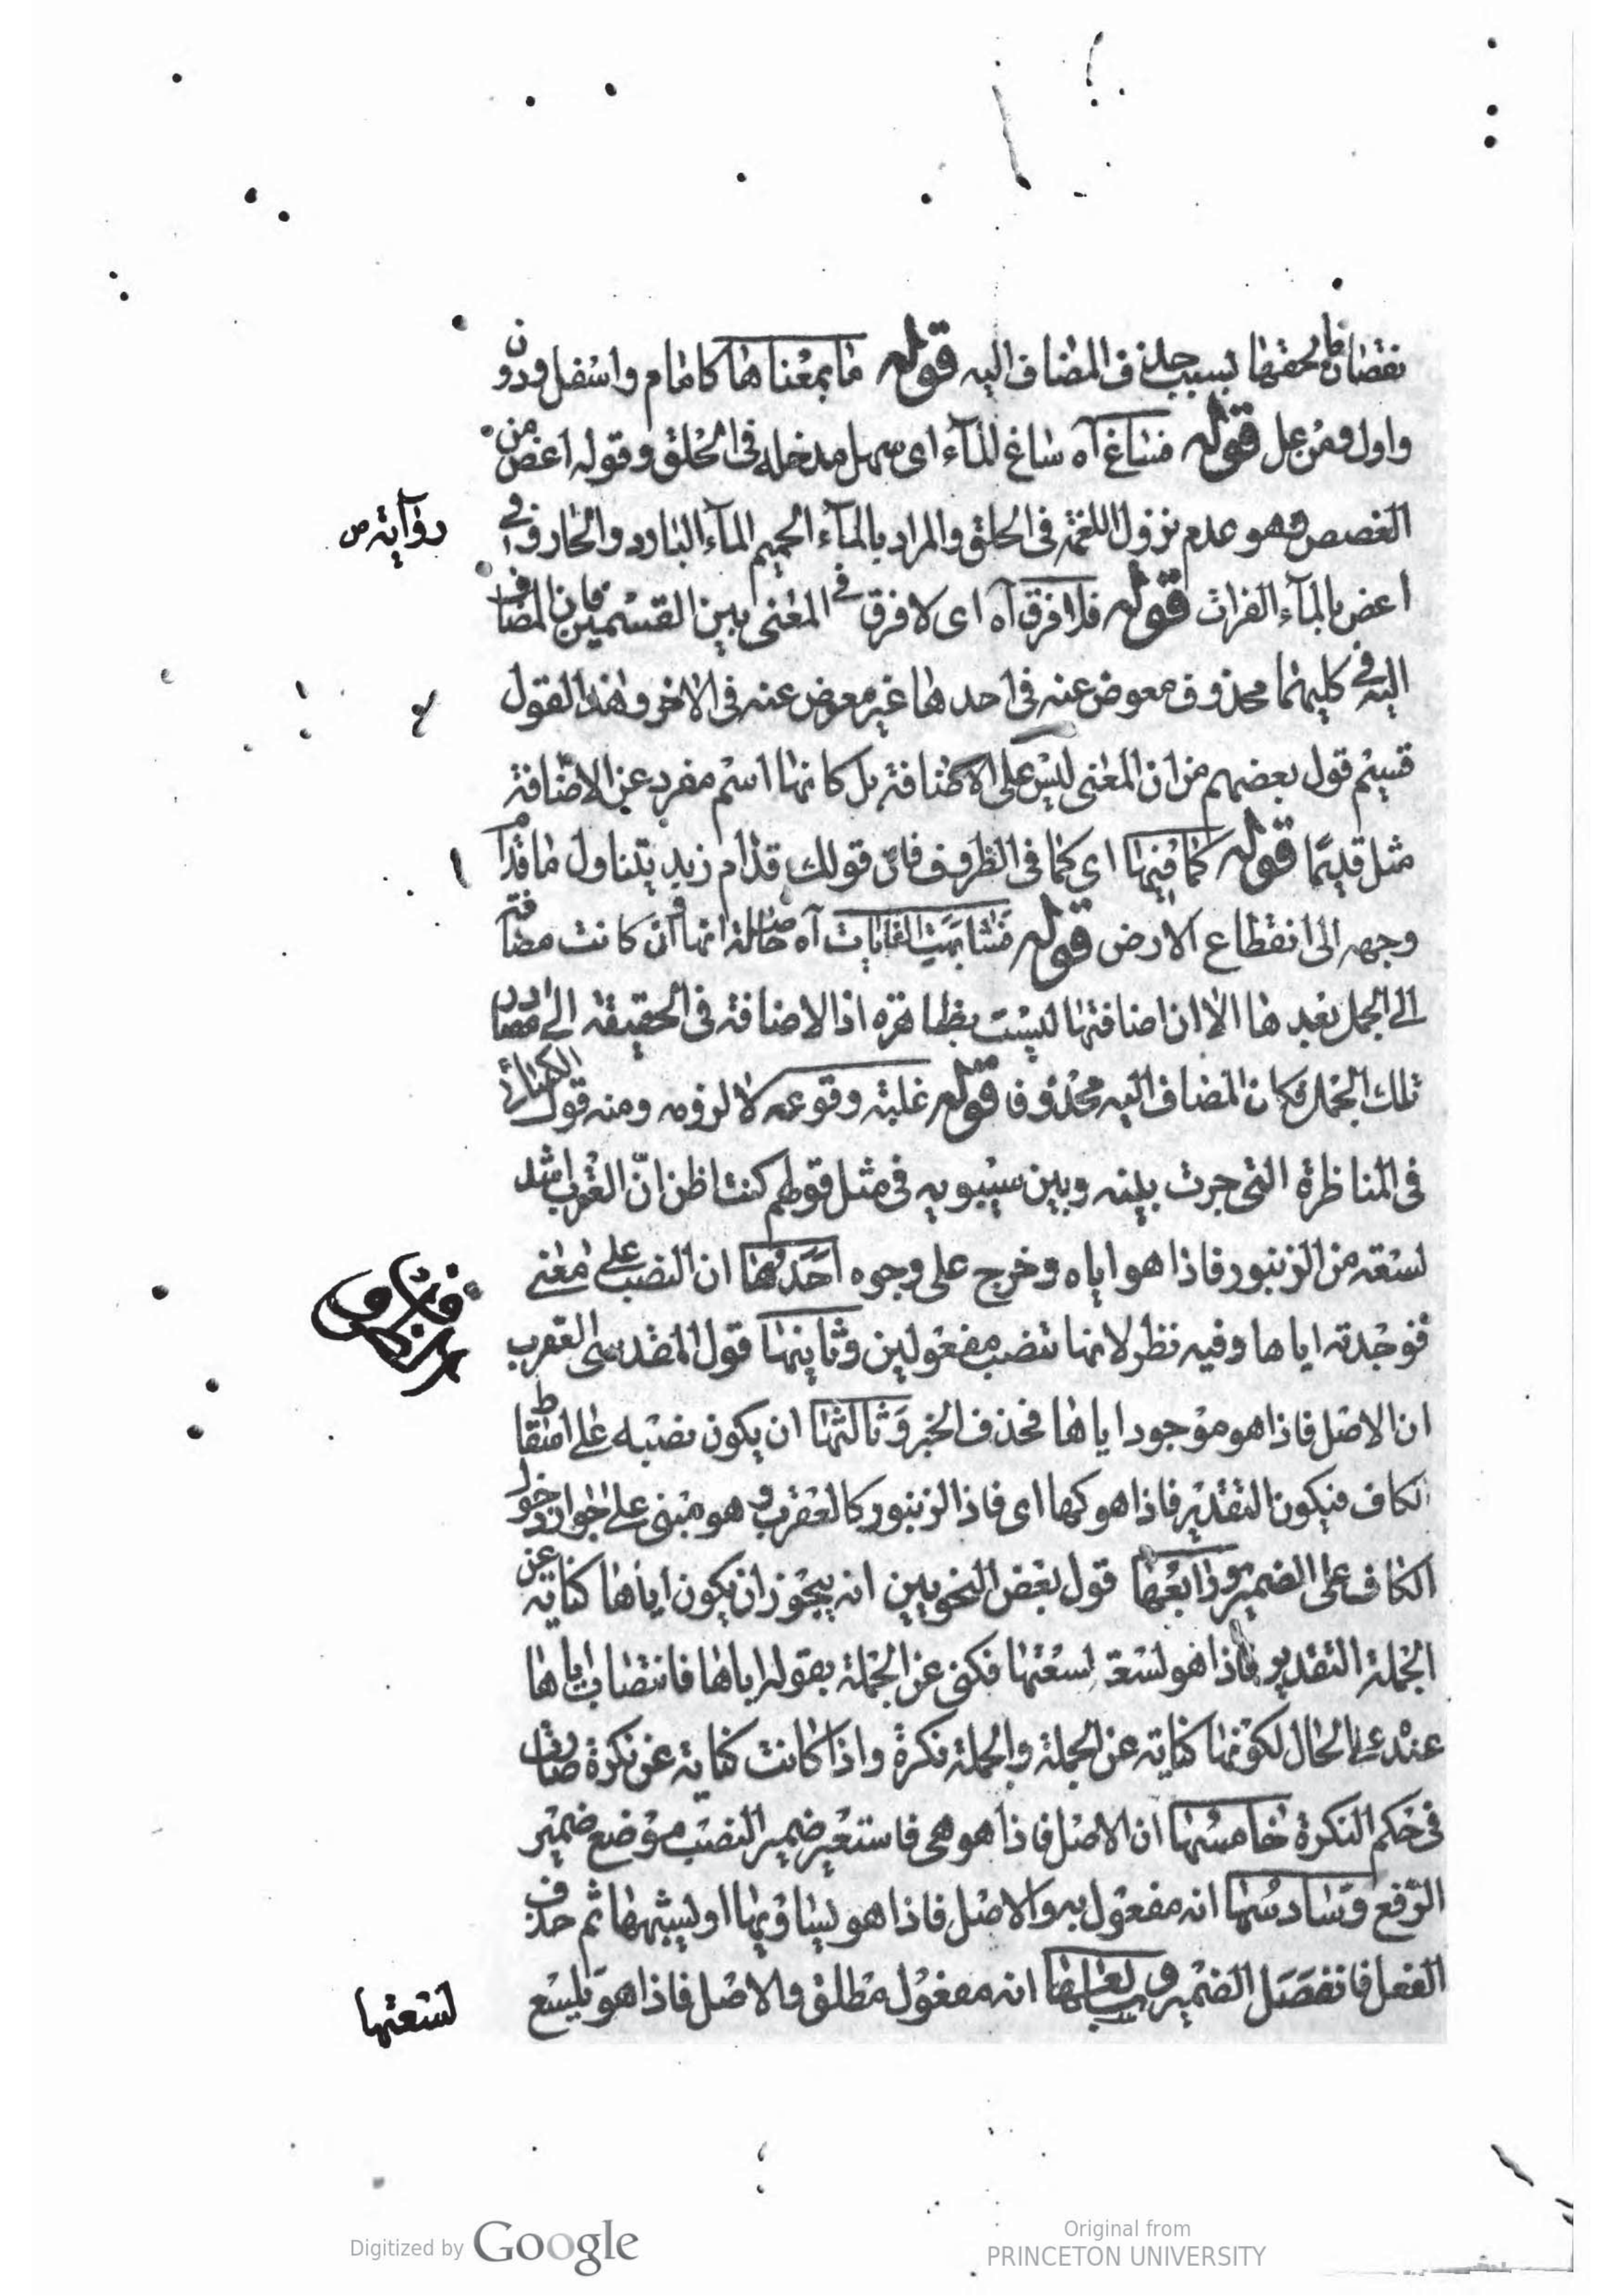 نقصان يلحقها بسبب حذف المضاف اليه قوله ما بمعناها كامام واسفل ودون
واول ومن عل قوله فساغ آه ساغ الماء اى سهل مدخله فى الحلق وقوله اغص من
الغصص وهو عدم نزول اللقمة فى الحلق والمراد بالماء الحميم الماء البارد والحار وفى
رواية ص
اغص بالماء الفرات قوله فلا فرق آه اى لا فرق فى المعنى بين القسمين فان المضاف
اليه فى كليهما محذوف معوض عنه فى احدها غير معوض عنه فى الاخر وهذا القول
قسيم قول بعضهم من ان المعنى ليس على الاضافة بل كانها اسم مفرد عن الاضافة
مثل قديما قوله كما فيها اى كما فى الظروف فان قولك قدام زيد يتناول ما قدام
وجهه الى انقطاع الارض قوله فشابهت الغايات آه حاصله انها وان كانت مضافة
الى الجمل بعدها الا ان اضافتها ليست بظاهرة اذ الاضافة فى الحقيقة الى مصادر
تلك الجمل فكان المضاف اليه محذوفا قوله غلبة وقوعه لا لزومه ومنه قول الكسائى
فى المناظرة التى جرت بينه وبين سيبويه فى مثل قولهم كنت اظن ان العقرب اشد
لسعة من الزنبور فاذا هو اياه وخرج على وجوه احدها ان النصب على معنى
فوجدته اياها وفيه نظر لانها تنصب مفعولين وثانيها قول المقدسى العقرب
ان الاصل فاذا هو موجود اياها فحذف الخبر وثالثها ان يكون نصبه على اسقاط
الكاف فيكون التقدير فاذا هو كها اى فاذا الزنبور كالعقرب وهو مبنى على جواز دخول
الكاف على الضمير ورابعها قول بعض النحويين انه يجوز ان يكون اياها كناية عن
الجملة التقدير فاذا هو لسعة لسعتها فكنى عن الجملة بقوله اياها فانتصاب اياها
عنده على الحال لكونها كناية عن الجملة والجملة نكرة واذا كانت كناية عن نكرة صارت
فى حكم النكرة خامسها ان الاصل فاذا هو هى فاستعير ضمير النصب موضع ضمير
الرفع وسادسها انه مفعول به والاصل فاذا هو يساويها او يشبهها ثم حذف
الفعل فانفصل الضمير وسابعها انه مفعول مطلق والاصل فاذا هو يلسع
لسعتها